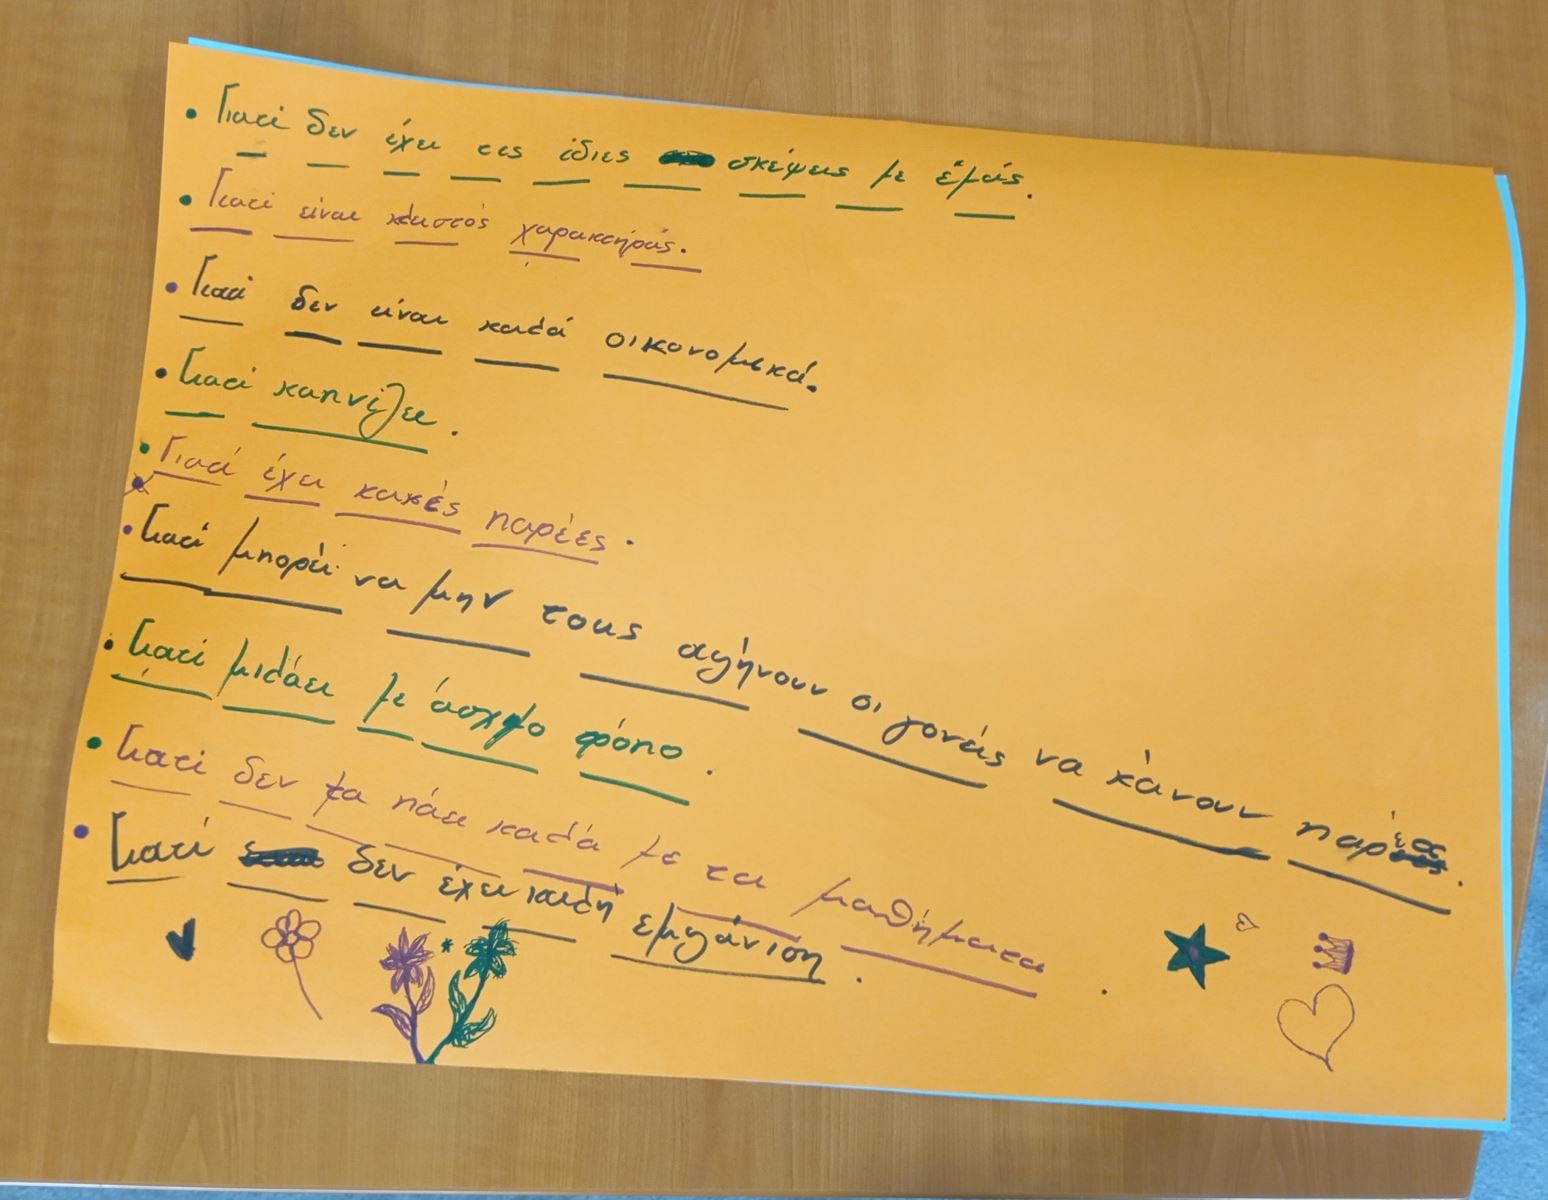 • Γιατί δεν έχει τις ίδιες σκέψεις με έμάς.
• Γιατί είναι κλειστός χαρακτήράς.
• Γιατί δεν είναι καλά οικονομικά.
• Γιατί καπνίζει.
• Γιατί έχει κακές παρέες.
• Γιατί μπορεί να μην τους αφήνουν οι γονείς να κάνουν παρέα.
• Γιατί μιλάει με άσχημο τρόπο.
• Γιατί δεν τα πάει καλά με τα μαθήματα.
• Γιατί δεν έχει καλή εμφάνιση.